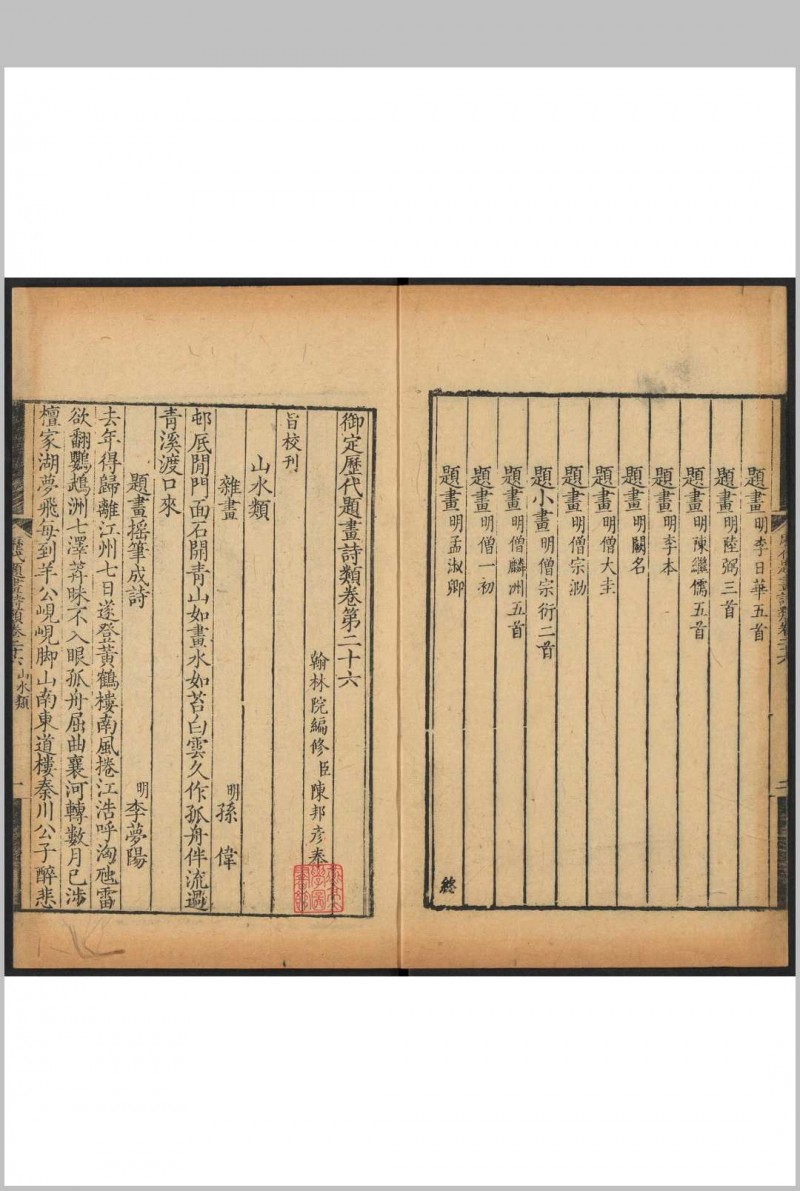 題畫明李日華五首
題畫明陸弼三首
題畫明陳繼儒五首
題畫明李本
題畫明闕名
題畫明僧大圭
題畫明僧宗泐
題小畫明僧宗衍二首
題畫明僧麟洲五首
題畫明僧一初
題畫明孟淑卿
終
御定歷代題畫詩類卷第二十六
翰林院編修臣陳邦彥奉
旨校刊
山水類
雜畫 明孫偉
邨底閒門面石開青山如畫水如苔白雲久作孤舟伴流過
青溪渡口來
題畫摇筆成詩 明李夢陽
去年得歸離江州七日遂登黃鶴樓南風捲江浩呼洶虺雷
欲翻鸚鵡洲七澤莽昧不入眼孤舟屈曲襄河轉數月已涉
檀家湖夢飛每到羊公峴峴脚山南東道樓秦川公子醉悲
山水類
一